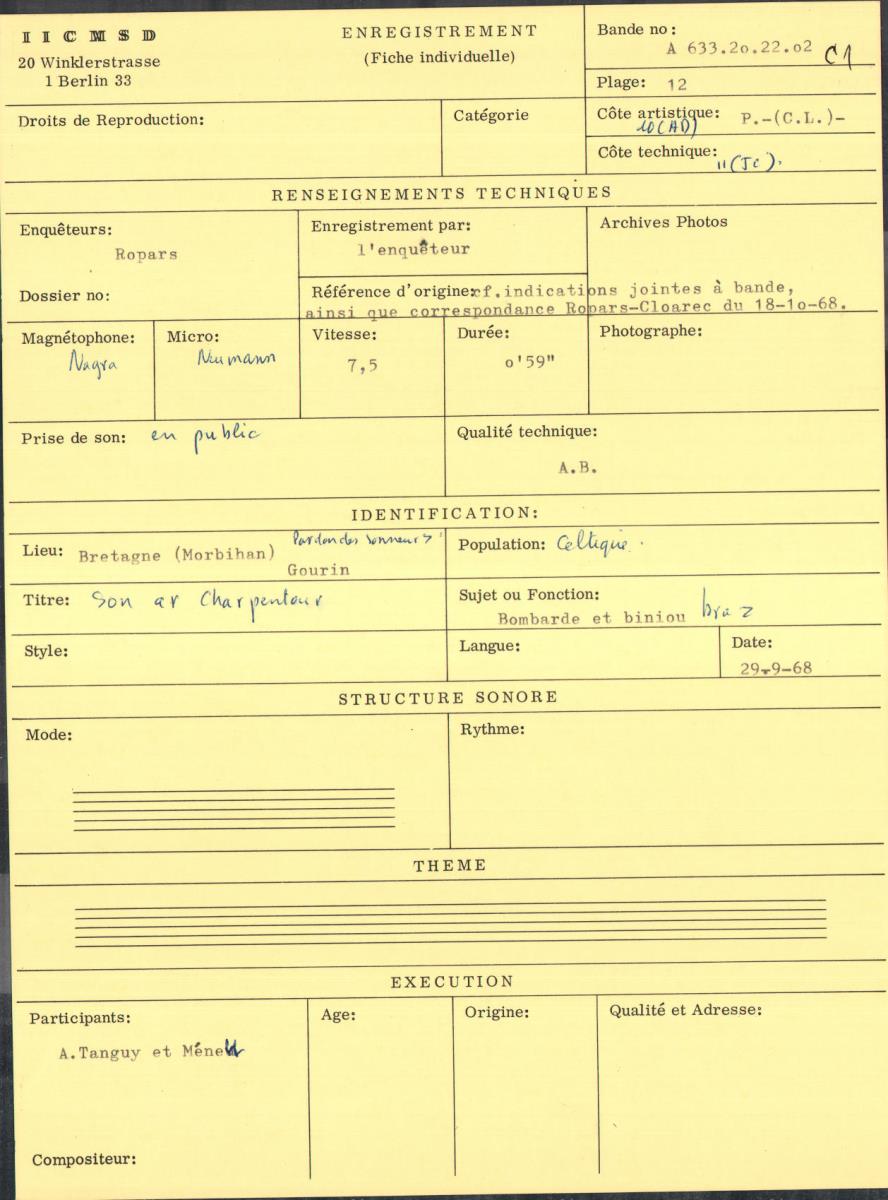 I I C M S D
20 Winklerstrasse
1 Berlin 33
ENREGISTREMENT
(Fiche individuelle)
Bande no: A 633.2o.22.o2 C1
Plage: 12
Droits de Reproduction:
Catégorie
Côte artistique: P.-(C.L.)-
10(AD)
Côte technique: "(Jc).
RENSEIGNEMENTS TECHNIQUES
Enquêteurs:
Ropars
Dossier no:
Enregistrement par:
l'enquêteur
Référence d'origine: cf.indications jointes à bande,
ainsi que correspondance Ropars-Cloarec du 18-1o-68.
Archives Photos
Magnétophone:
Nagra
Micro:
Neumann
Vitesse:
7,5
Durée:
o'59"
Photographe:
Prise de son: en public
Qualité technique:
A.B.
IDENTIFICATION:
Lieu: Bretagne (Morbihan) Pardon des sonneurs
Gourin
Population: Celtique.
Titre: Son ar Charpentour
Sujet ou Fonction:
Bombarde et biniou braz
Style:
Langue:
Date:
29-9-68
STRUCTURE SONORE
Mode:
Rythme:
THEME
EXECUTION
Participants:
A.Tanguy et Ménell
Age:
Origine:
Qualité et Adresse:
Compositeur: